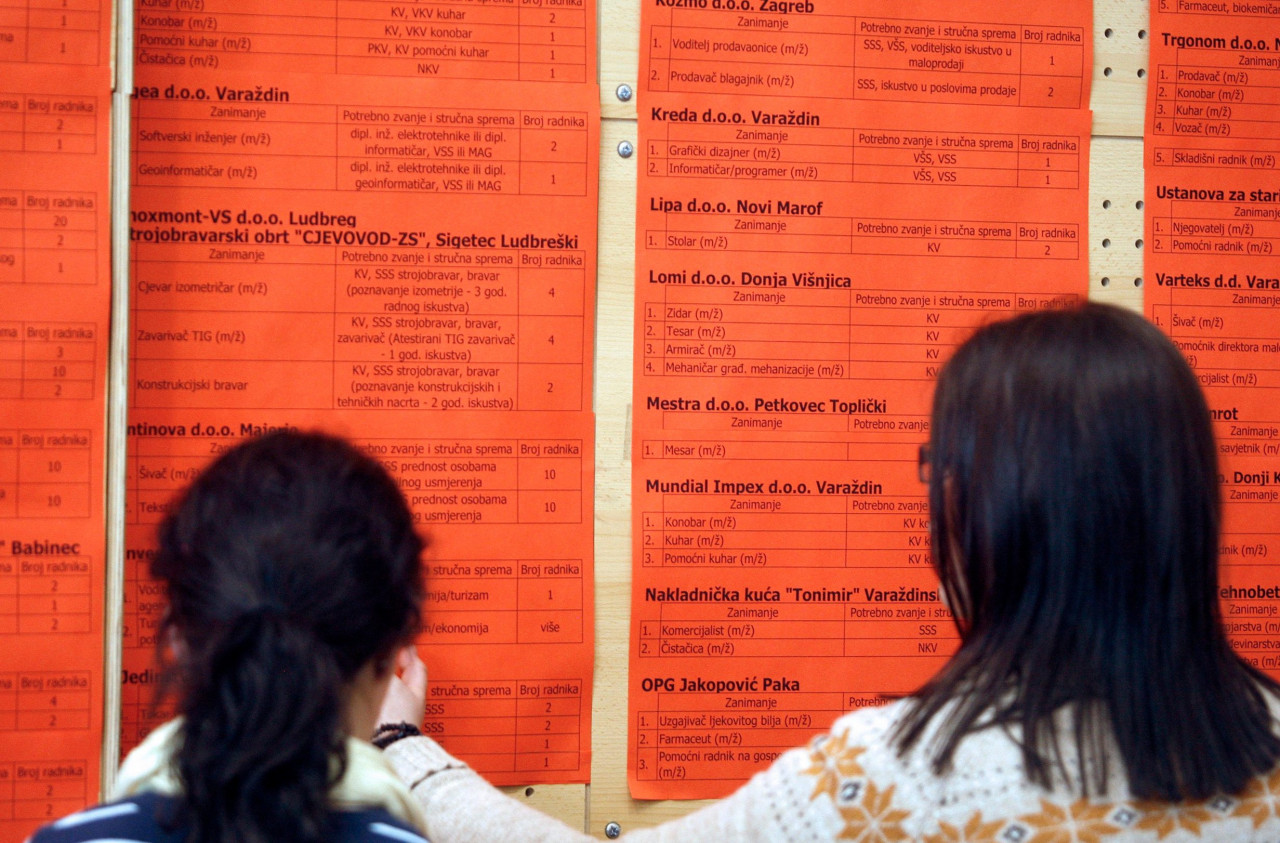 Broj radnika
2
1
20
2
1
3
10
2
Broj radnika
10
10
" Babinec
Broj radnika
2
1
2
Broj radnika
4
2
Broj radnika
2
2
Kuhar (m/ž) KV, VKV kuhar 2
Konobar (m/ž) KV, VKV konobar 1
Pomoćni kuhar (m/ž) PKV, KV pomoćni kuhar 1
Čistačica (m/ž) NKV 1
d.o.o. Varaždin
Zanimanje Potrebno zvanje i stručna sprema Broj radnika
Softverski inženjer (m/ž) dipl. inž. elektrotehnike ili dipl. informatičar, VSS ili MAG 2
Geoinformatičar (m/ž) dipl. inž. elektrotehnike ili dipl. geoinformatičar, VSS ili MAG 1
noxmont-VS d.o.o. Ludbreg
trojobravarski obrt "CJEVOVOD-ZS", Sigetec Ludbreški
Zanimanje Potrebno zvanje i stručna sprema Broj radnika
Cjevar izometričar (m/ž) KV, SSS strojobravar, bravar (poznavanje izometrije - 3 god. radnog iskustva) 4
Zavarivač TIG (m/ž) KV, SSS strojobravar, bravar, zavarivač (Atestirani TIG zavarivač - 1 god. iskustva) 4
Konstrukcijski bravar KV, SSS strojobravar, bravar (poznavanje konstrukcijskih i tehničkih nacrta - 2 god. iskustva) 2
ntinova d.o.o. Majerje
zvanje i stručna sprema Broj radnika
Šivač (m/ž) prednost osobama usmjerenja 10
prednost osobama usmjerenja 10
stručna sprema Broj radnika
1
/ekonomija više
stručna sprema Broj radnika
SSS 2
SSS 2
1
1
Kozmo d.o.o. Zagreb
Zanimanje Potrebno zvanje i stručna sprema Broj radnika
1. Voditelj prodavaonice (m/ž) SSS, VŠS, voditeljsko iskustvo u maloprodaji 1
2. Prodavač blagajnik (m/ž) SSS, iskustvo u poslovima prodaje 2
Kreda d.o.o. Varaždin
Zanimanje Potrebno zvanje i stručna sprema Broj radnika
1. Grafički dizajner (m/ž) VŠS, VSS 1
2. Informatičar/programer (m/ž) VŠS, VSS 1
Lipa d.o.o. Novi Marof
Zanimanje Potrebno zvanje i stručna sprema Broj radnika
1. Stolar (m/ž) KV 2
Lomi d.o.o. Donja Višnjica
Zanimanje Potrebno zvanje i stručna sprema Broj radnika
1. Zidar (m/ž) KV
2. Tesar (m/ž) KV
3. Armirač (m/ž) KV
4. Mehaničar građ. mehanizacije (m/ž) KV
Mestra d.o.o. Petkovec Toplički
Zanimanje Potrebno zvanje
1. Mesar (m/ž)
Mundial Impex d.o.o. Varaždin
Zanimanje Potrebno zvanje
1. Konobar (m/ž) KV
2. Kuhar (m/ž) KV
3. Pomoćni kuhar (m/ž) KV
Nakladnička kuća "Tonimir" Varaždins
Zanimanje Potrebno zvanje i stru
1. Komercijalist (m/ž) SSS
2. Čistačica (m/ž) NKV
OPG Jakopović Paka
Zanimanje
1. Uzgajivač ljekovitog bilja (m/ž)
2. Farmaceut (m/ž)
3. Pomoćni radnik na gosp (m/ž)
5. Farmaceut, biokemičar
Trgonom d.o.o. N
Zanimanje
1. Prodavač (m/ž)
2. Konobar (m/ž)
3. Kuhar (m/ž)
4. Vozač (m/ž)
5. Skladišni radnik (m/ž)
Ustanova za stari
Zanimanje
1. Njegovatelj (m/ž)
2. Pomoćni radnik (m/ž)
Varteks d.d. Vara
Zanimanje
1. Šivač (m/ž)
Pomoćnik direktora
Zanimanje
savjetnik (m/
Donji K
Zanimanje
Zanimanje